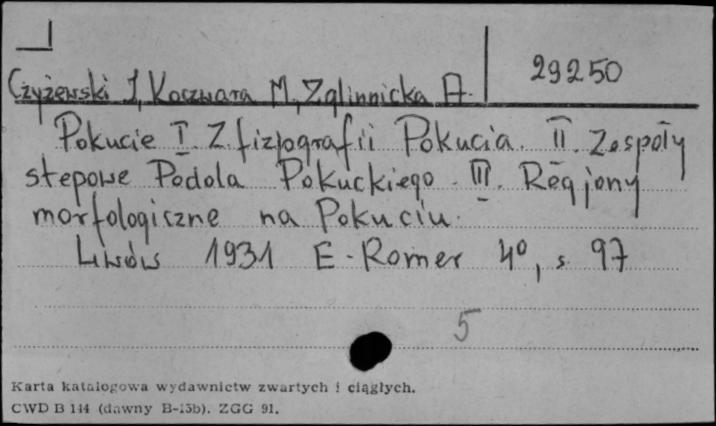 29250
Czyżewski J, Koczwara M, Zglinnicka A.
Pokucie I. Z fizjografii Pokucia. II. Zespoły
stepowe Podola Pokuckiego. III. Regjony
morfologiczne na Pokuciu.
Lwów 1931 E. Romer 4°, s. 97
5
Karta katalogowa wydawnictw zwartych i ciągłych.
CWD B 144 (dawny B-15b). ZGG 91.